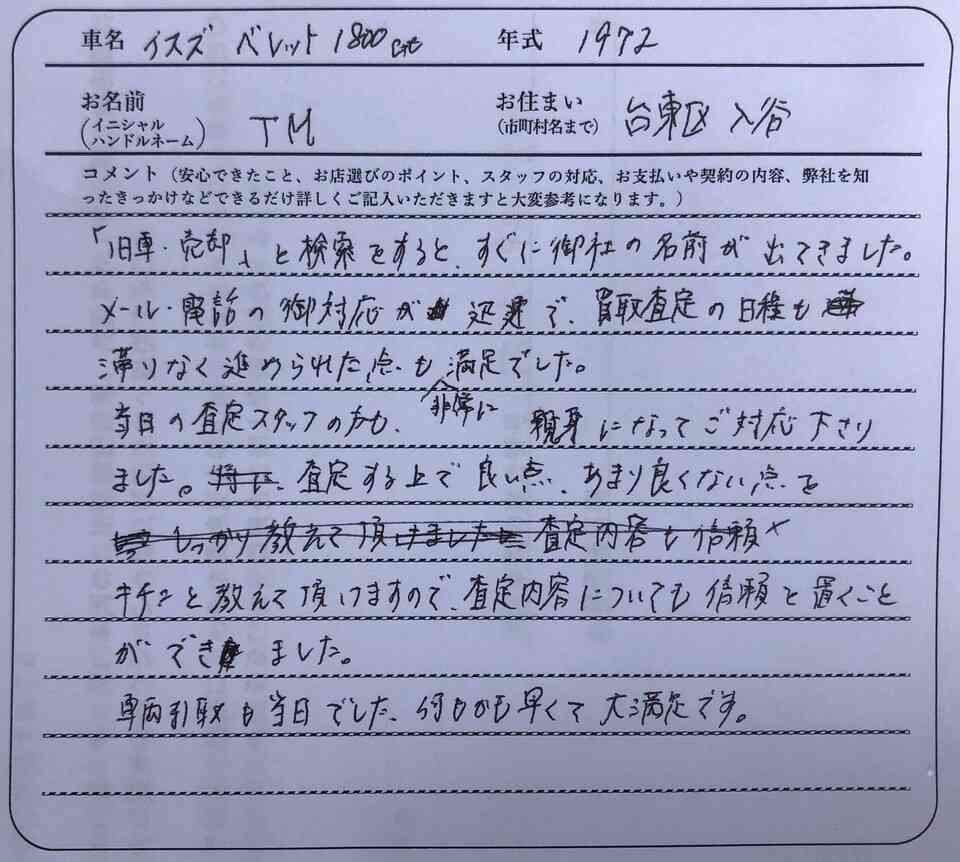 車名 イスズ ベレット 1800GT 年式 1972
お名前 (イニシャル ハンドルネーム) TM お住まい (市町村名まで) 台東区 入谷
コメント（安心できたこと、お店選びのポイント、スタッフの対応、お支払いや契約の内容、弊社を知
ったきっかけなどできるだけ詳しくご記入いただきますと大変参考になります。）
「旧車・売却」と検索をすると、すぐに御社の名前が出てきました。
メール・電話の御対応が迅速で、買取査定の日程も
滞りなく進められた点も満足でした。
当日の査定スタッフの方も、非常に親身になってご対応下さり
ました。特に、査定する上で良い点、あまり良くない点を
しっかり教えて頂けました 査定内容も信頼
キチンと教えて頂けますので、査定内容についても信頼を置くこと
ができました。
車両引取も当日でした、何もかも早くて大満足です。